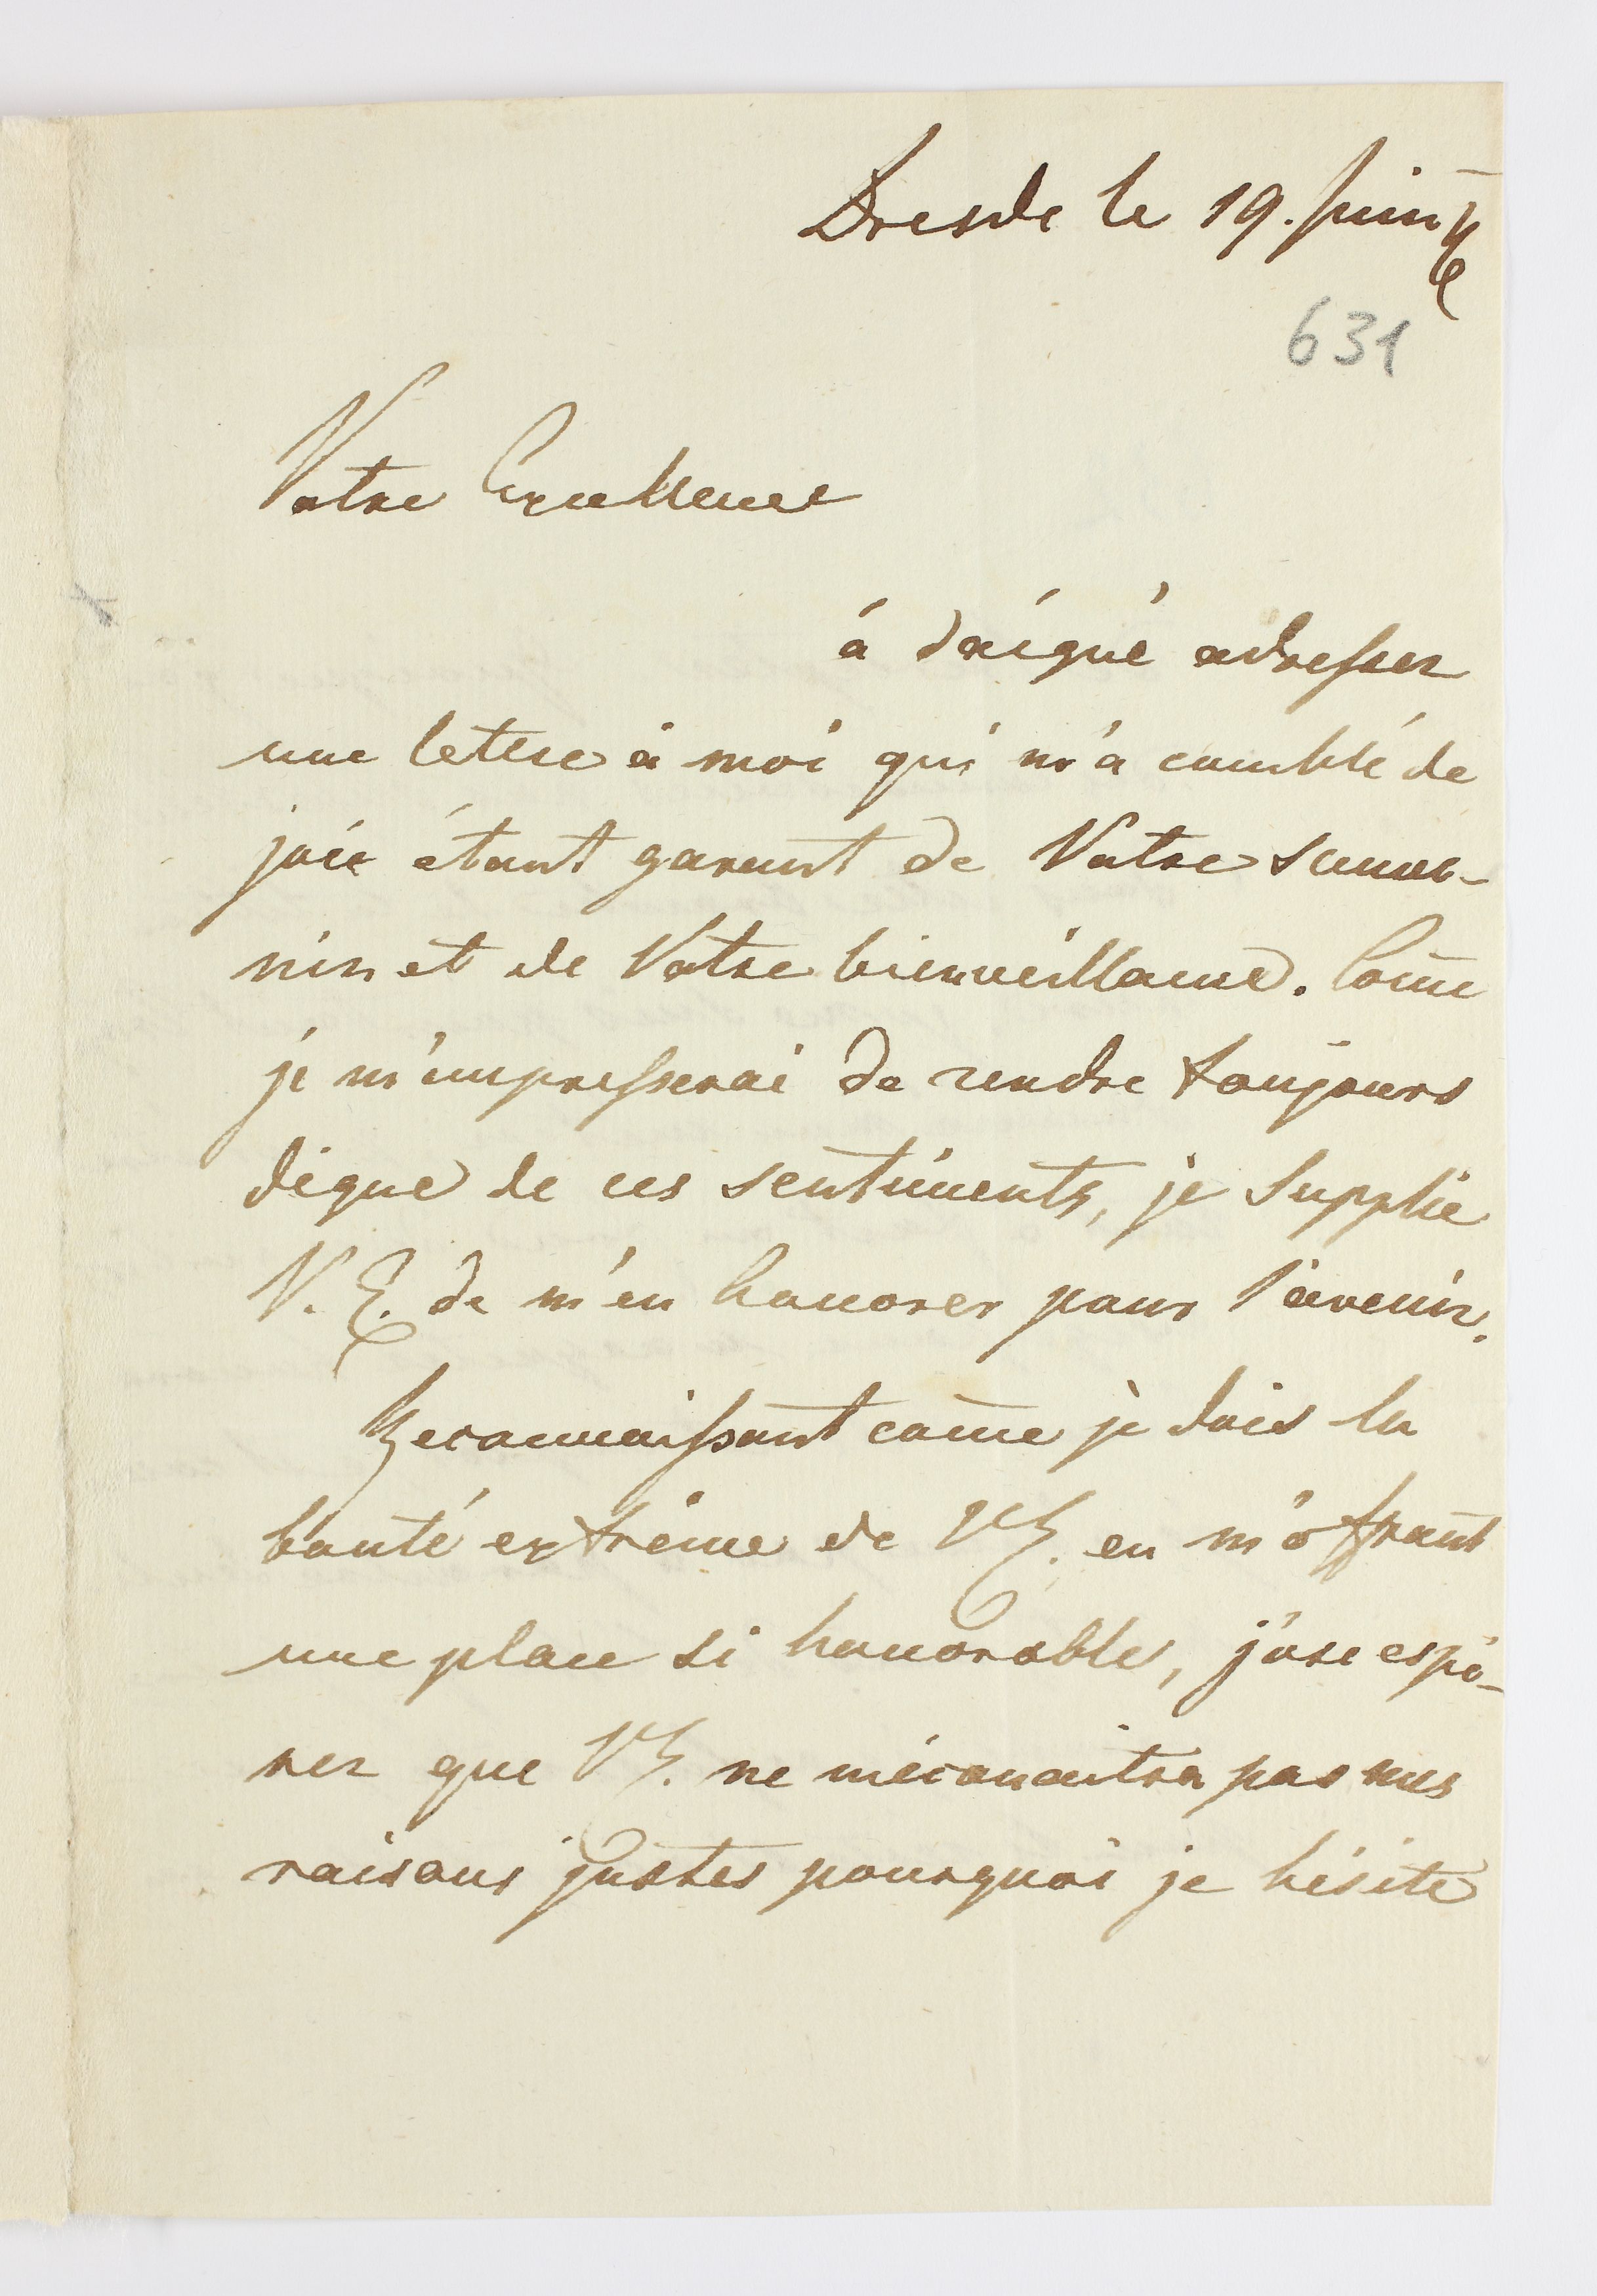 Dresde le 19. Juin
631
Votre Excellence
á daigné adresser
une lettre à moi qui m'a comblé de
joie étant garant de Votre souve-
nir et de Votre bienveillance. Come
je m'empresserai de rendre toujours
digne de ces sentiments, je supplie
V. E. de m'en honorer pour l'avenir.
Reconnaissant come je dois la
bonté extrème de VE. en m'offrant
une place si honorable, j'ose espé-
rer que VE. ne méconaitra pas mes
raisons justes pourquoi je hésite